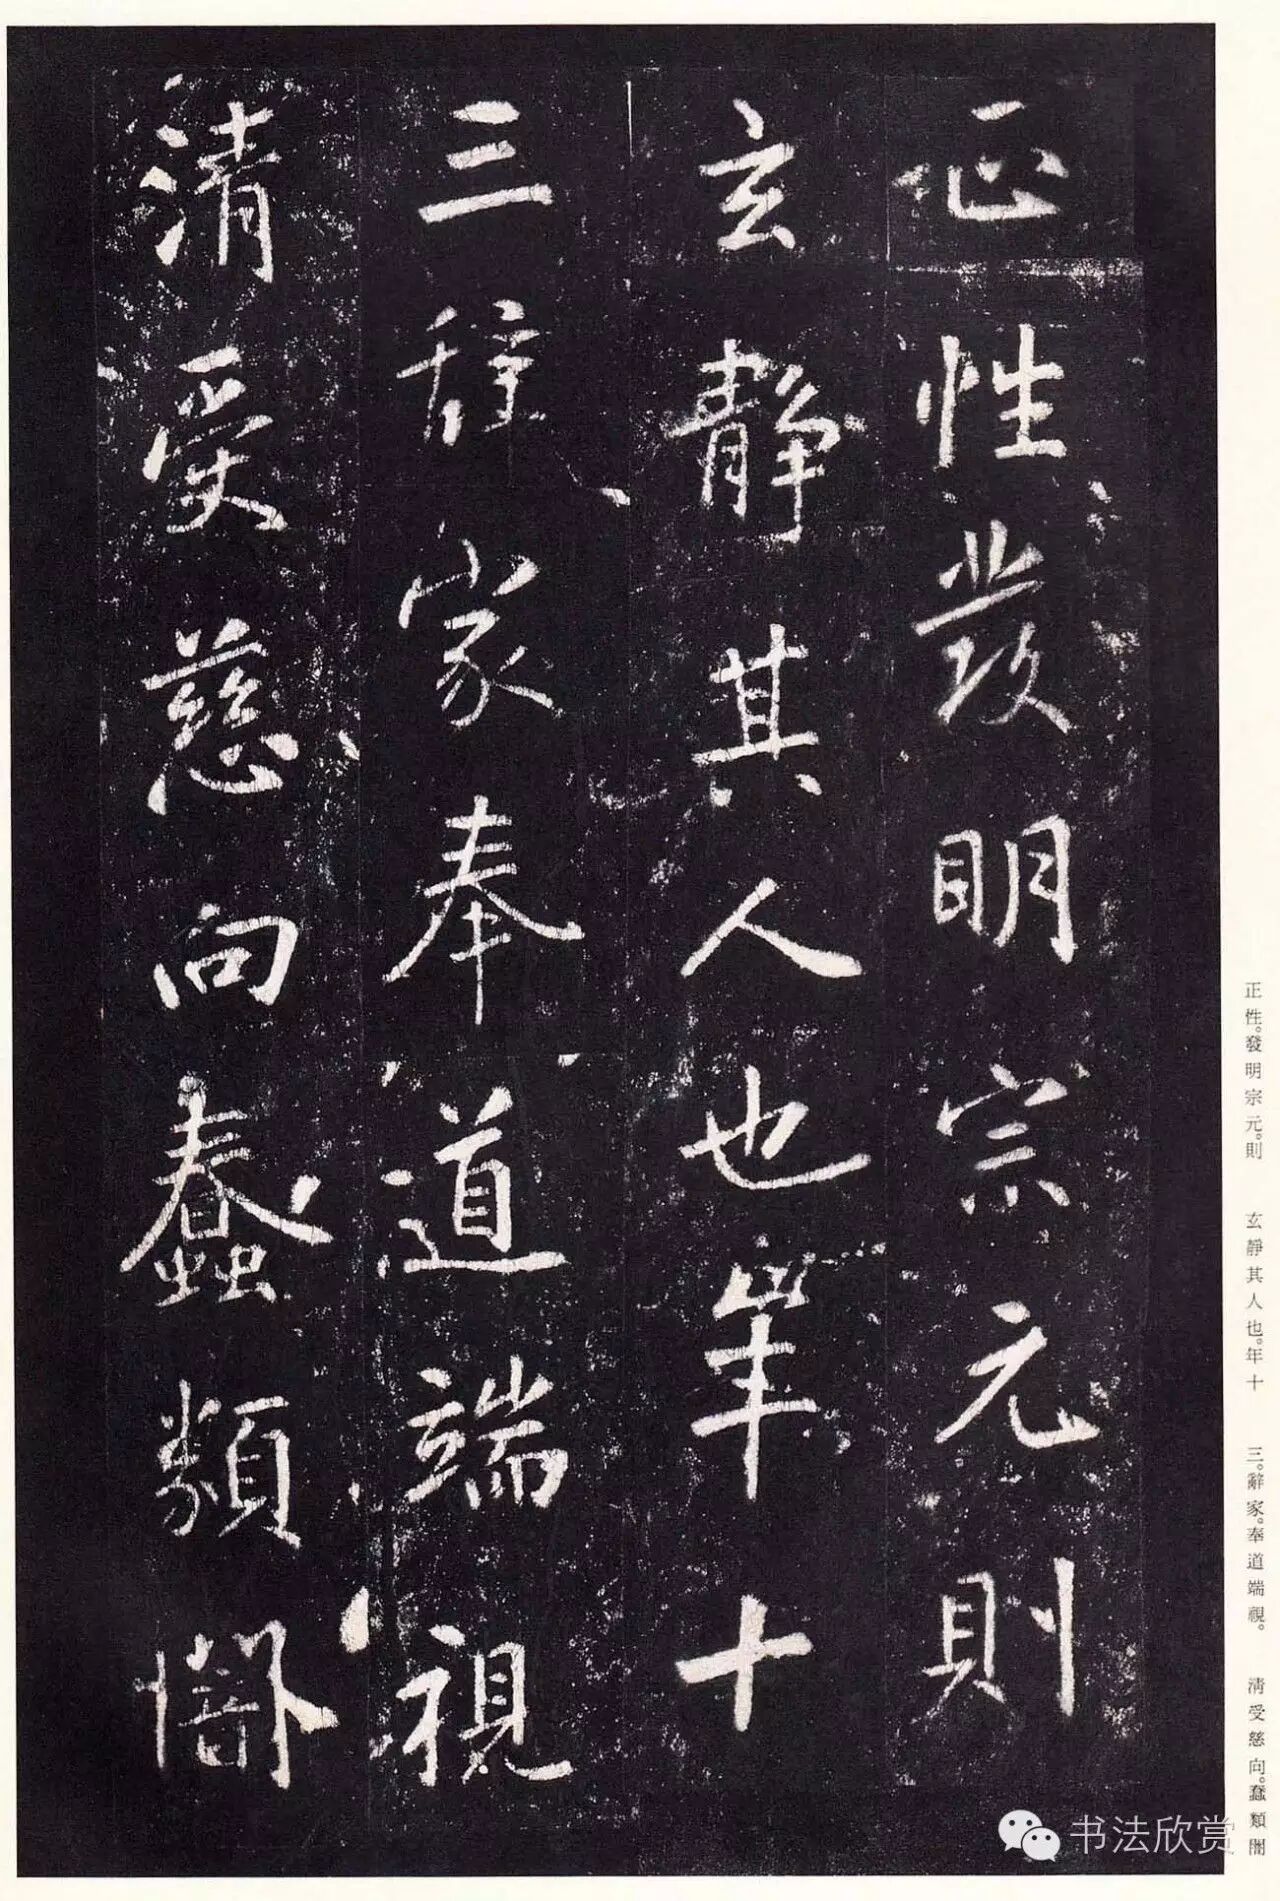 正性發明宗元則
玄靜其人也年十
三辭家奉道端視
清受慈向蠢類闇
正性。發明宗元。則
玄靜其人也。年十
三。辭家。奉道端視。
清受慈向。蠢類闇
书法欣赏